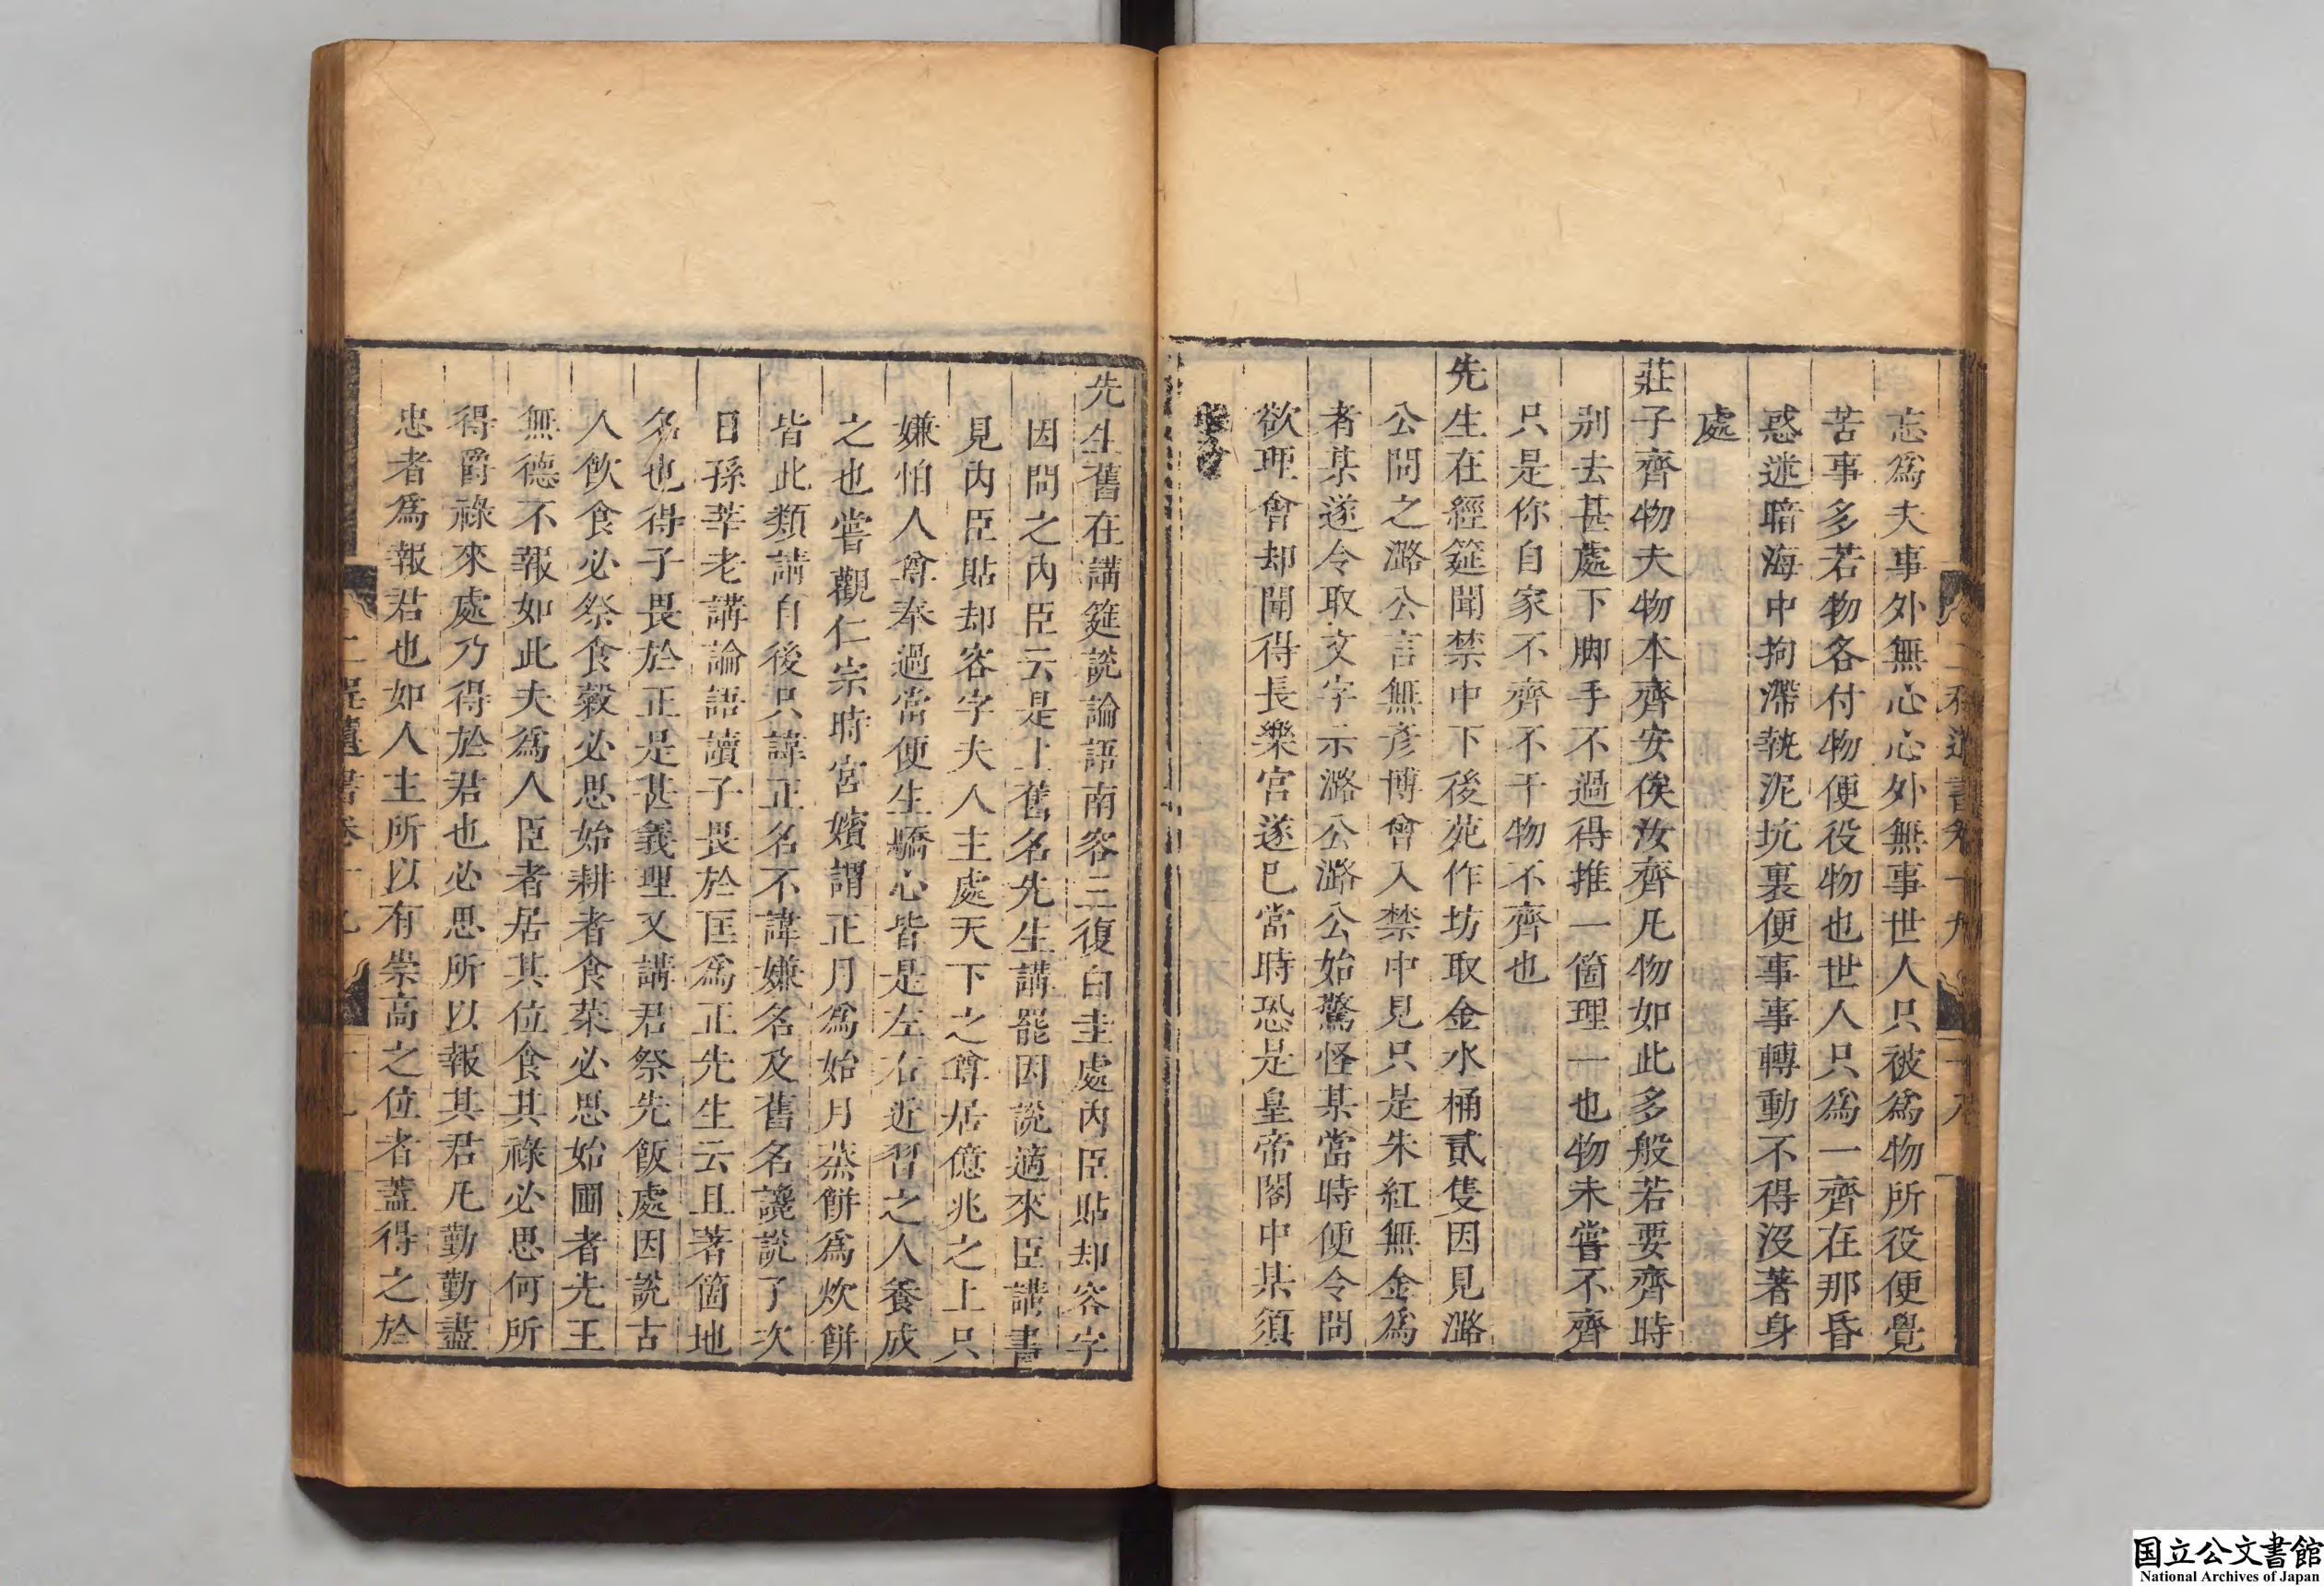 忘爲夫事外無心心外無事世人只被爲物所役便覺
苦事多若物各付物便役物也世人只爲一齊在那昏
惑迷暗海中拘滯執泥坑裏便事事轉動不得沒著身
處
莊子齊物夫物本齊安俟汝齊凡物如此多般若要齊時
别去甚處下脚手不過得推一箇理一也物未嘗不齊
只是你自家不齊不干物不齊也
先生在經筵聞禁中下後苑作坊取金水桶貳隻因見潞
公問之潞公言無彥博曾入禁中見只是朱紅無金爲
者某遂令取文字示潞公潞公始驚怪某當時便令問
欲理會却聞得長樂宮遂已當時恐是皇帝閣中某須
理會
先生舊在講筵說論語南容三復白圭處內臣貼却容字
因問之內臣云是上舊名先生講罷因說適來臣講書
見內臣貼却容字夫人主處天下之尊居億兆之上只
嫌怕人尊奉過當便生驕心皆是左右近習之人養成
之也嘗觀仁宗時宮嬪謂正月爲始月蒸餅爲炊餅
皆此類請自後只諱正名不諱嫌名及舊名纔說了次
日孫莘老講論語讀子畏於匡爲正先生云且著箇地
名也得子畏於正是甚義理又講君祭先飯處因說古
人飲食必祭食穀必思始耕者食菜必思始圃者先王
無德不報如此夫爲人臣者居其位食其祿必思何所
得爵祿來處乃得於君也必思所以報其君凡勤勤盡
忠者爲報君也如人主所以有崇高之位者蓋得之於
二程遺書卷十九
国立公文書館
National Archives of Japan